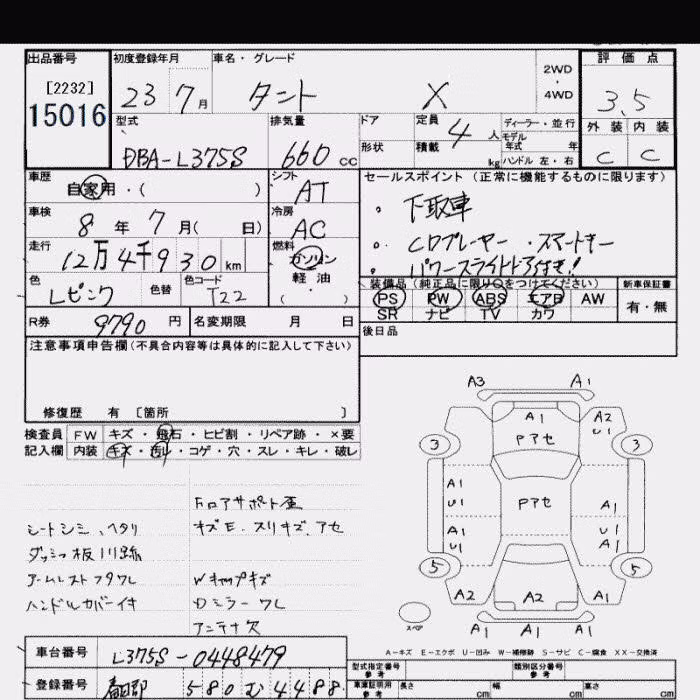 出品番号 初度登録年月 車名・グレード 2WD・4WD 評価点
[2232]
15016
23 7月 タント X 3.5
型式 排気量 ドア 定員 4人 ディーラー・並行 外装 内装
モデル年式 年
DBA-L375S 660cc 形状 積載 kg ハンドル 左・右 C C
車歴 シフト セールスポイント(正常に機能するものに限ります)
自家用・( ) AT
。下取車
車検 冷房
8年7月( 日) AC
。CDプレーヤー・スマートキー
走行 燃料
12万4千930km ガソリン
。パワースライドドア付き!
軽油
・( )
色 色替 色コード
Lピンク T22
装備品(純正品に限り○をつけてください) 新車保証書
PS PW ABS エアB AW 有・無
SR ナビ TV カワ
R券 9790円 名変期限 月 日
後日品
注意事項申告欄(不具合内容等は具体的に記入して下さい)
修復歴 有 [箇所 ]
検査員 FW キズ・飛石・ヒビ割・リペア跡・×要
記入欄 内装 キズ・汚レ・コゲ・穴・スレ・キレ・破レ
A3 A1
A1 A2
U1
3 Pアセ 3
A1
U1 Pアセ A1
A1 U1
U1 A1
5 5
A2 A2 A2
A1 A1 A1
スペア
シートシミ、ヘタリ
ダッシュ板川跡
アームレストフタワレ
ハンドルカバーイキ
Fロアサポート歪
キズE.スリキズ.アセ
Wキャップキズ
Dミラーワレ
アンテナ欠
A-キズ E-エクボ U-凹み W-補修跡 S-サビ C-腐食 XX-交換済
車台番号 L375S-0448479
登録番号 580む4488
型式指定番号 参考 類別区分番号 参考
車庫証明用 参考 長さ cm 幅 cm 高さ cm